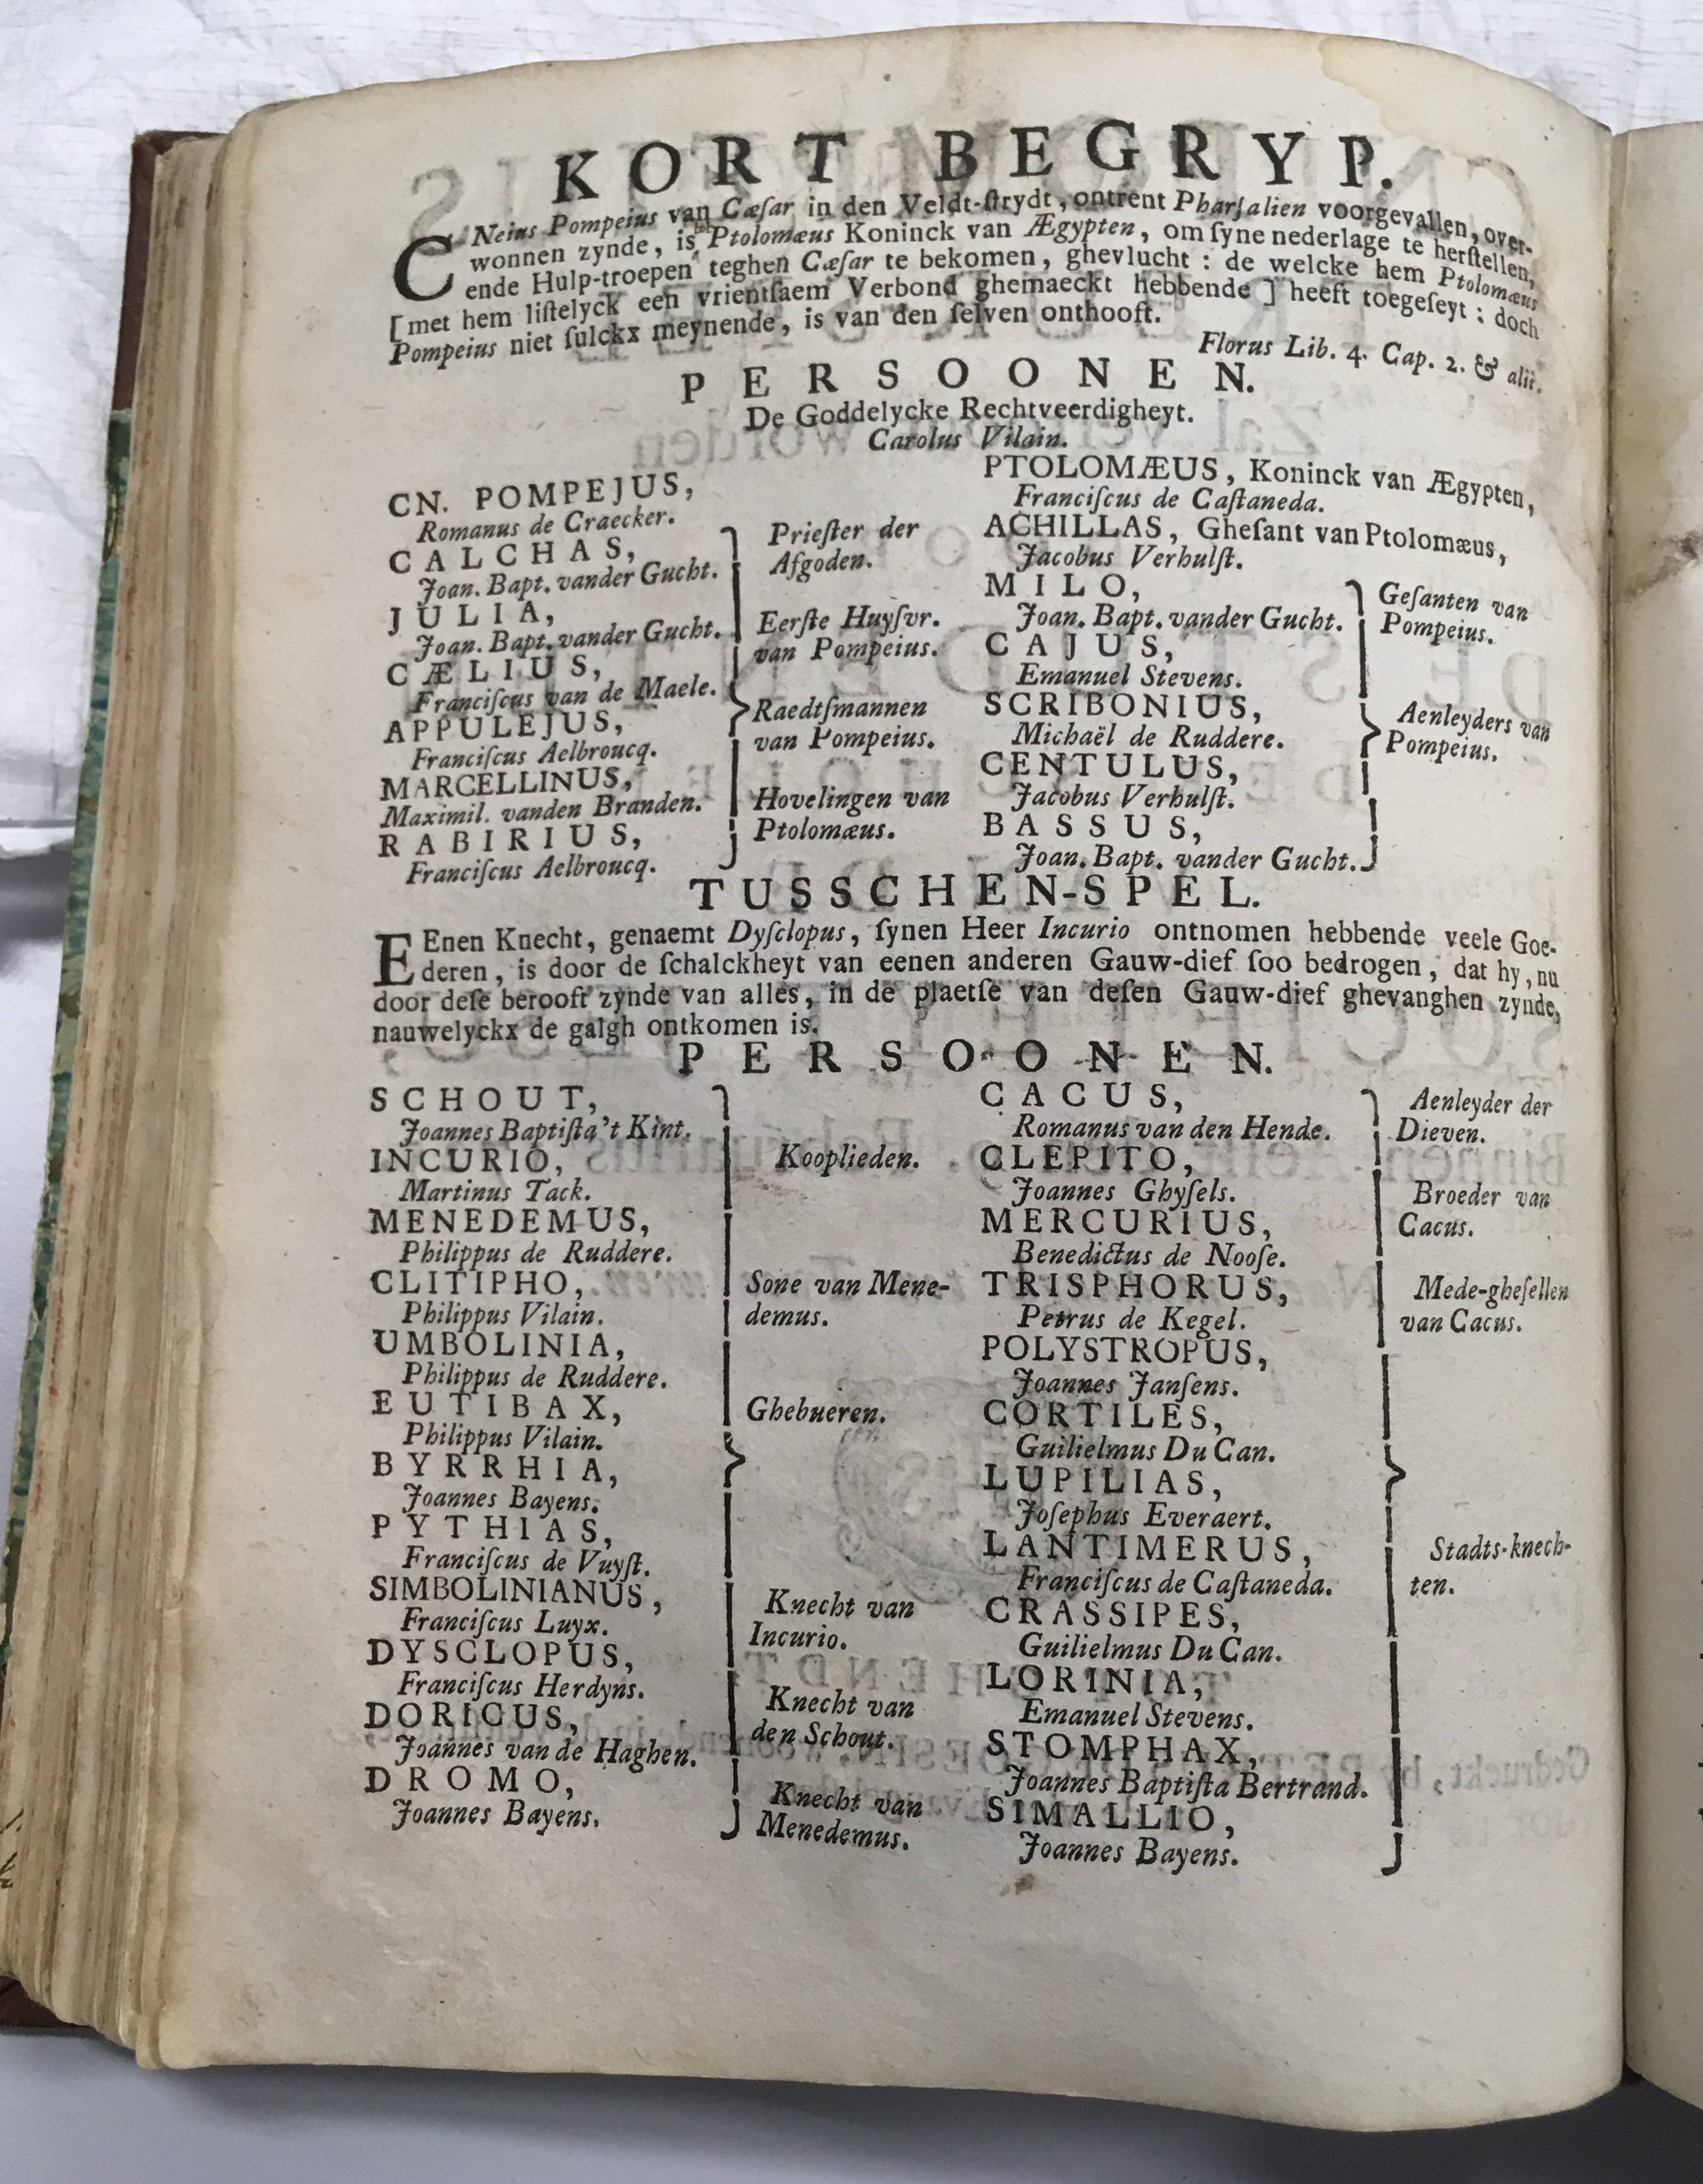 KORT BEGRYP.
CNeius Pompeius van Cæſar in den Veldt-ſtrydt, ontrent Pharſalien voorgevallen, over-
wonnen zynde, is Ptolomæus Koninck van Ægypten, om ſyne nederlage te herſtellen,
ende Hulp-troepen teghen Cæſar te bekomen, ghevlucht : de welcke hem Ptolomæus
[met hem liſtelyck een vrientſaem Verbond ghemaeckt hebbende ] heeft toegeſeyt ; doch
Pompeius niet ſulckx meynende, is van den ſelven onthooft.
Florus Lib. 4. Cap. 2. & alii.
PERSOONEN.
De Goddelycke Rechtveerdigheyt.
Carolus Vilain.
CN. POMPEJUS,
Romanus de Craecker.
CALCHAS,
Joan. Bapt. vander Gucht.
JULIA,
Joan. Bapt. vander Gucht.
CÆLIUS,
Franciſcus van de Maele.
APPULEJUS,
Franciſcus Aelbroucq.
MARCELLINUS,
Maximil. vanden Branden.
RABIRIUS,
Franciſcus Aelbroucq.
Prieſter der
Afgoden.
Eerſte Huyſvr.
van Pompeius.
Raedtſmannen
van Pompeius.
Hovelingen van
Ptolomæus.
PTOLOMÆUS, Koninck van Ægypten,
Franciſcus de Caſtaneda.
ACHILLAS, Gheſant van Ptolomæus,
Jacobus Verhulſt.
MILO,
Joan. Bapt. vander Gucht.
CAJUS,
Emanuel Stevens.
SCRIBONIUS,
Michaël de Ruddere.
CENTULUS,
Jacobus Verhulſt.
BASSUS,
Joan. Bapt. vander Gucht.
Geſanten van
Pompeius.
Aenleyders van
Pompeius.
TUSSCHEN-SPEL.
EEnen Knecht, genaemt Dyſclopus, ſynen Heer Incurio ontnomen hebbende veele Goe-
deren, is door de ſchalckheyt van eenen anderen Gauw-dief ſoo bedrogen, dat hy, nu
door deſe berooft zynde van alles, in de plaetſe van deſen Gauw-dief ghevanghen zynde,
nauwelyckx de galgh ontkomen is.
PERSOONEN.
SCHOUT,
Joannes Baptiſta 't Kint.
INCURIO,
Martinus Tack.
MENEDEMUS,
Philippus de Ruddere.
CLITIPHO,
Philippus Vilain.
UMBOLINIA,
Philippus de Ruddere.
EUTIBAX,
Philippus Vilain.
BYRRHIA,
Joannes Bayens.
PYTHIAS,
Franciſcus de Vuyſt.
SIMBOLINIANUS,
Franciſcus Luyx.
DYSCLOPUS,
Franciſcus Herdyns.
DORICUS,
Joannes van de Haghen.
DROMO,
Joannes Bayens.
Kooplieden.
Sone van Mene-
demus.
Ghebueren.
Knecht van
Incurio.
Knecht van
den Schout.
Knecht van
Menedemus.
CACUS,
Romanus van den Hende.
CLEPITO,
Joannes Ghyſels.
MERCURIUS,
Benedictus de Nooſe.
TRISPHORUS,
Petrus de Kegel.
POLYSTROPUS,
Joannes Janſens.
CORTILES,
Guilielmus Du Can.
LUPILIAS,
Joſephus Everaert.
LANTIMERUS,
Franciſcus de Caſtaneda.
CRASSIPES,
Guilielmus Du Can.
LORINIA,
Emanuel Stevens.
STOMPHAX,
Joannes Baptiſta Bertrand.
SIMALLIO,
Joannes Bayens.
Aenleyder der
Dieven.
Broeder van
Cacus.
Mede-gheſellen
van Cacus.
Stadts-knech-
ten.